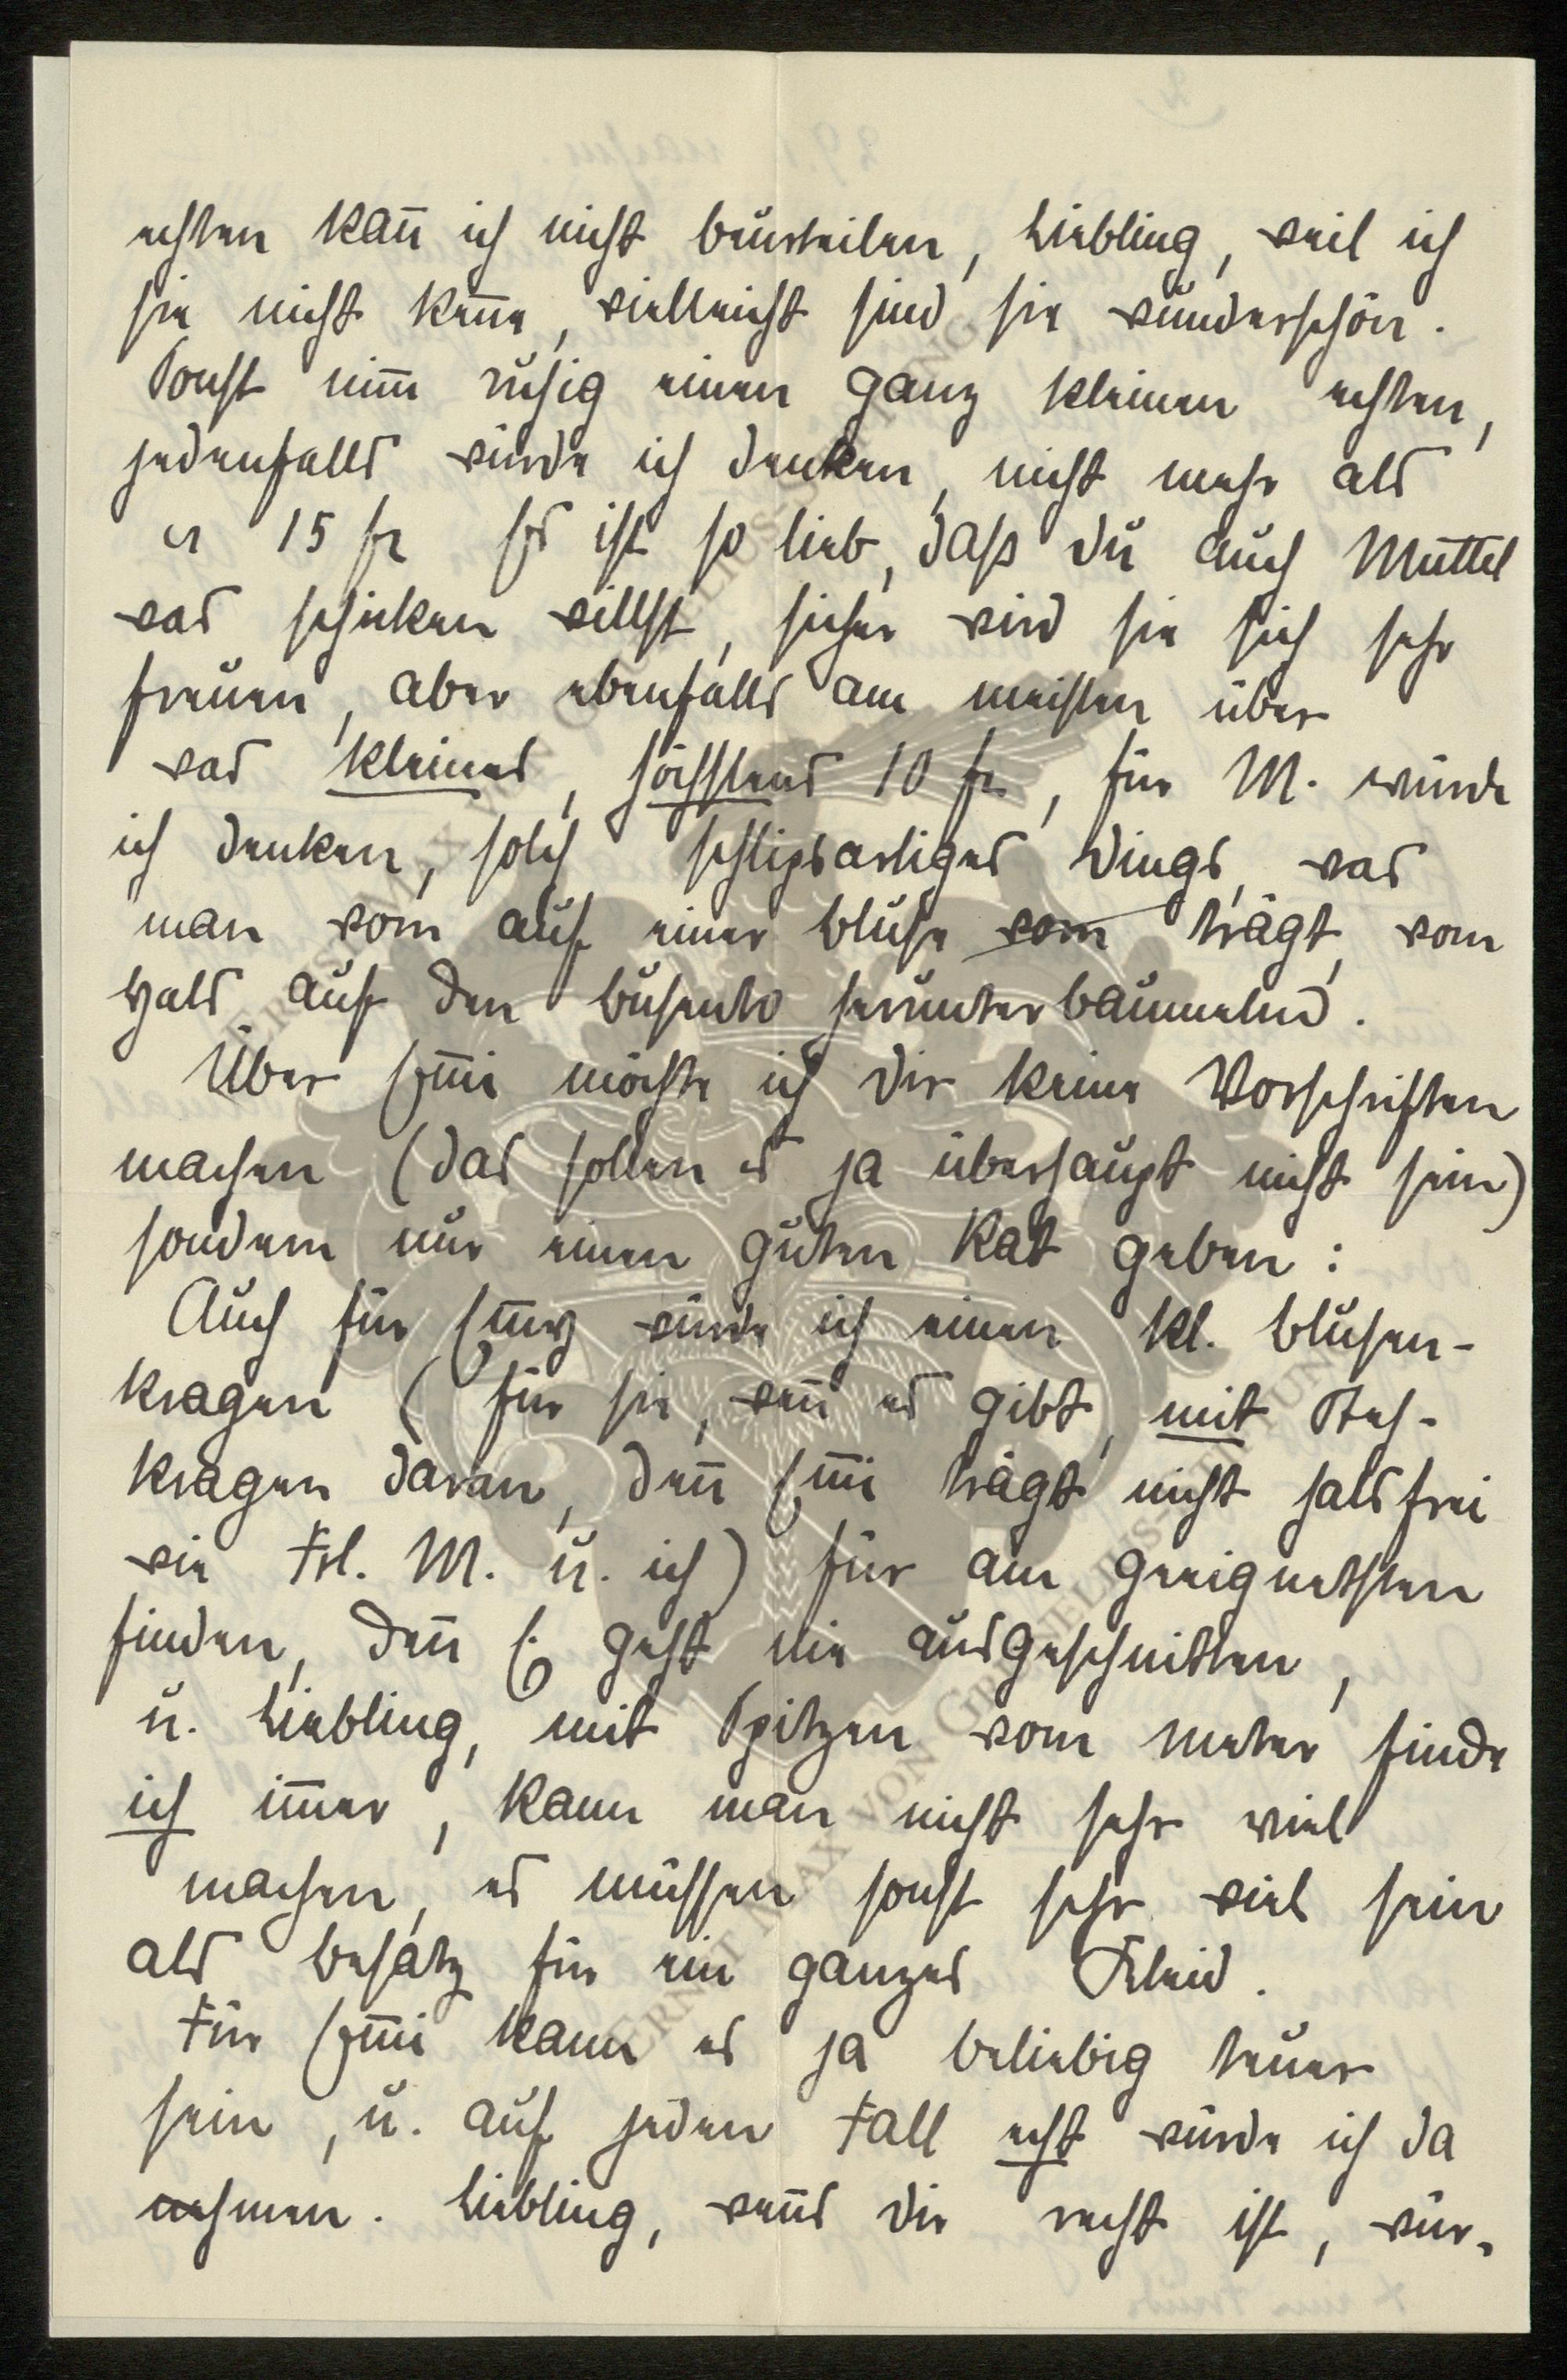 echten kan̄ ich nicht beurteilen, Liebling, weil ich
sie nicht ken̄e, vielleicht sind sie wunderschön.
Sonst nim̄ ruhig einen ganz kleinen echten,
jedenfalls würde ich denken, nicht mehr als
15 fr Es ist so lieb, daß du auch Muttel
was schicken willst, sicher wird sie sich sehr
freuen, aber ebenfalls am meisten über
was kleines, höchstens 10 fr, für M. würde
ich denken, solch schlipsartiges Dings, was
man vorn auf einer Bluse vorn trägt, vom
Hals auf den Busento herunterbaumelnd.
Über Em̄i möchte ich Dir keine Vorschriften
machen (das sollen es ja überhaupt nicht sein)
sondern nur einen guten Rat geben:
Auch für Em̄y würde ich einen kl. Blusen-
kragen (für sie, wen̄ es gibt, mit Steh-
kragen daran, den̄ Em̄i trägt nicht halsfrei
wie Frl. M. u. ich) für am geeignetsten
finden, den̄ E. geht nie ausgeschnitten,
u. Liebling, mit Spitzen vom Meter finde
ich im̄er, kann man nicht sehr viel
machen, es müssen sonst sehr viel sein
als Besatz für ein ganzes Kleid.
Für Em̄i kann es ja beliebig teuer
sein, u. auf jeden Fall echt würde ich da
nehmen. Liebling, wen̄s Dir recht ist, wür-